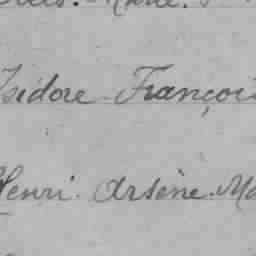 Isidore François
Henri Arsène Ma